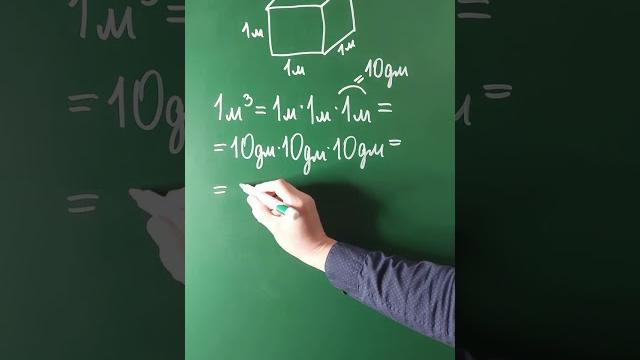 1м
1м
1м
= 10дм
1м³ = 1м · 1м · 1м =
= 10дм · 10дм · 10дм =
=